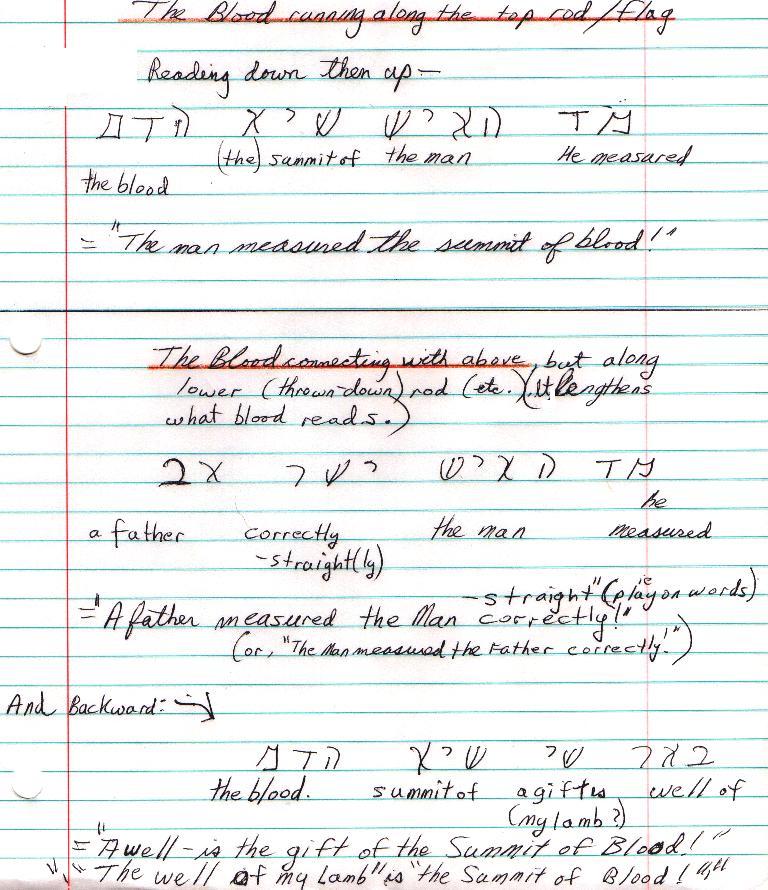 The Blood running along the top rod/flag
Reading down then up—
מד האיש שיא הדם
(the) summit of the man He measured
the blood
= "The man measured the summit of blood!"
The Blood connecting with above, but along
lower (thrown-down) rod (etc.) (It lengthens
what blood reads.)
מד האיש ישר אב
he
a father correctly the man measured
-straight(ly)
-straight" (play on words)
="A father measured the Man correctly!"
(or, "The Man measured the Father correctly!")
And Backward:
באר שי שיא הדם
the blood. summit of a gift is well of
(my lamb?)
= "A well - is the gift of the Summit of Blood!"
"The well of my Lamb" is "the Summit of Blood!"